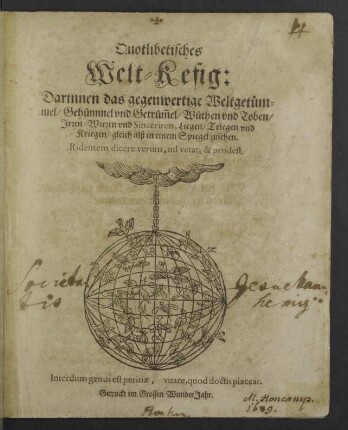 Quotlibetisches
Welt-Kefig:
Darinnen das gegenwertige Weltgetüm-
mel/ Gehümmel vnd Getrümmel/ Wüthen vnd Toben/
Irren/ Wirren vnd Sinceriren, Liegen/ Triegen vnd
Kriegen/ gleich alß in einem Spiegel zusehen.
Ridentem dicere verum, nil vetat, & prodest.
Societa-
tis
Interdum genus est peritiæ, vitare, quod doctis placeat.
Getruckt im Grossen Wunder Jahr.
1689.